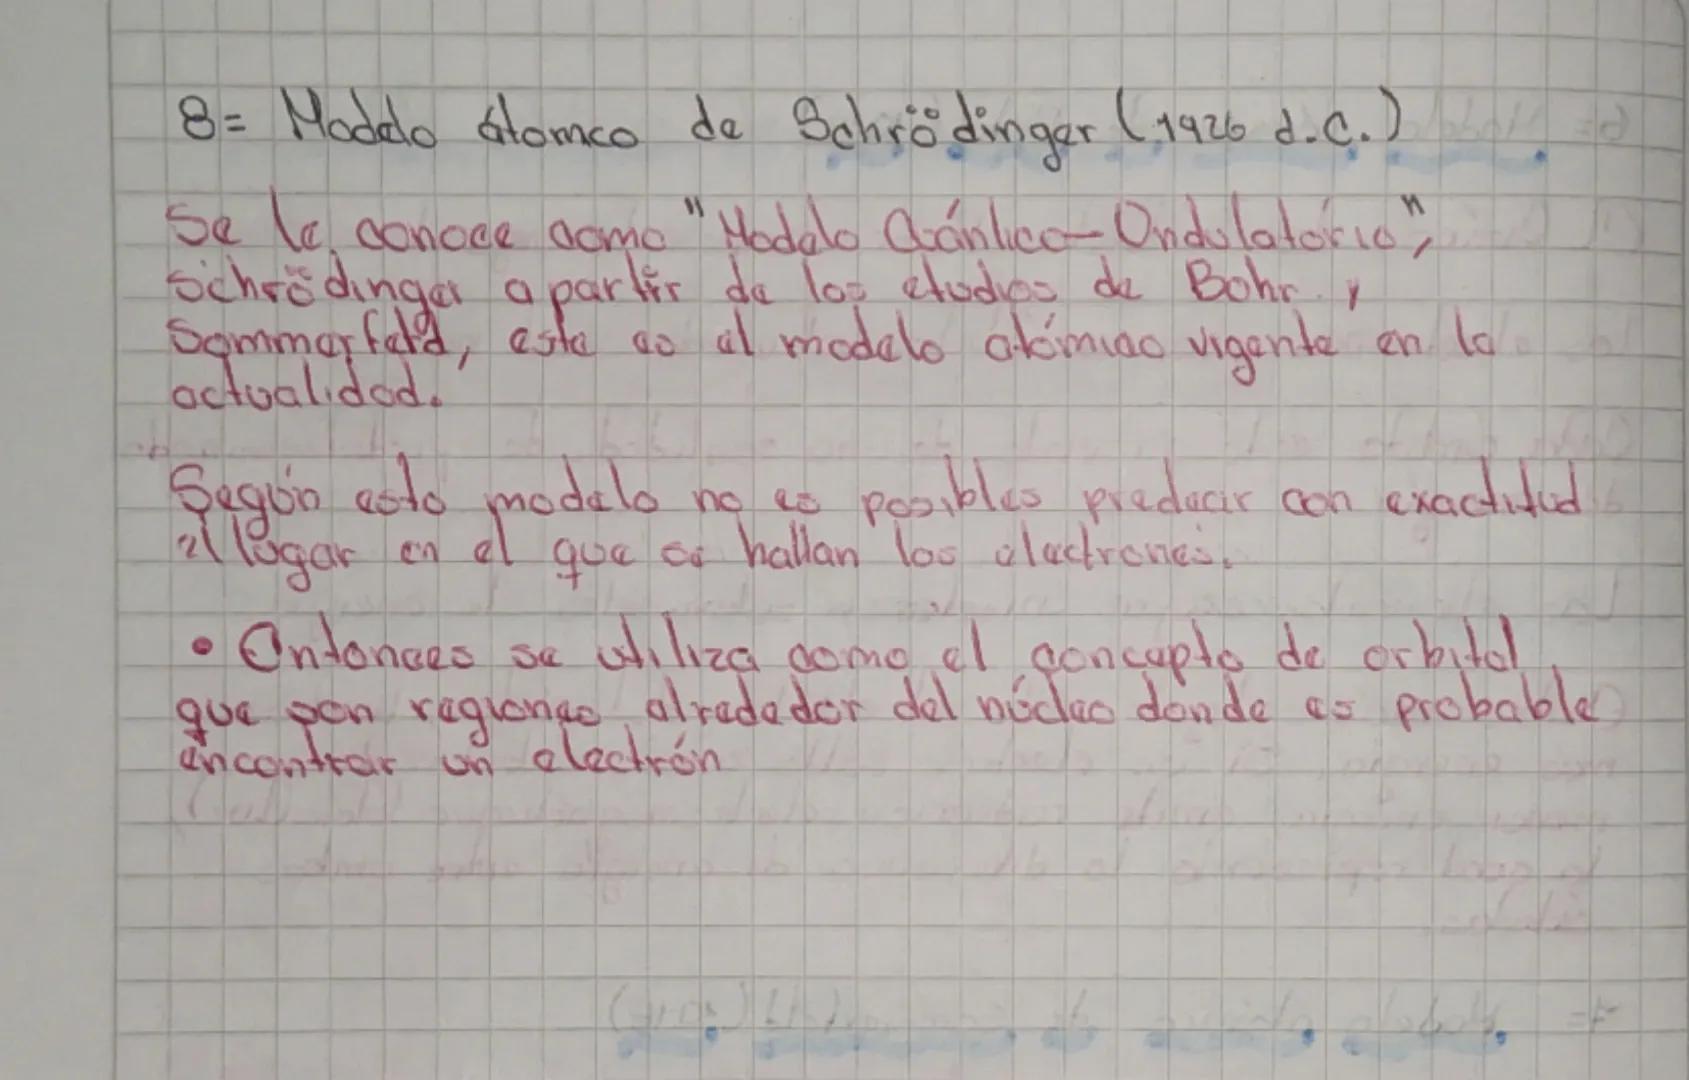 8= Modelo átomco de Schrödinger (1926 d.C.)
Se le conoce como "Modelo Cuántico-Ondulatorio",
Schrödinger a partir de los etudios de Bohr y
Sommerfeld, este es el modelo atómico vigente en la
actualidad.
Según esto modelo no es posibles predecir con exactitud
el lugar en el que se hallan los electrones.
• Entonces se utiliza como el concepto de orbital
que son regiones alrededor del núcleo donde es probable
encontrar un electrón